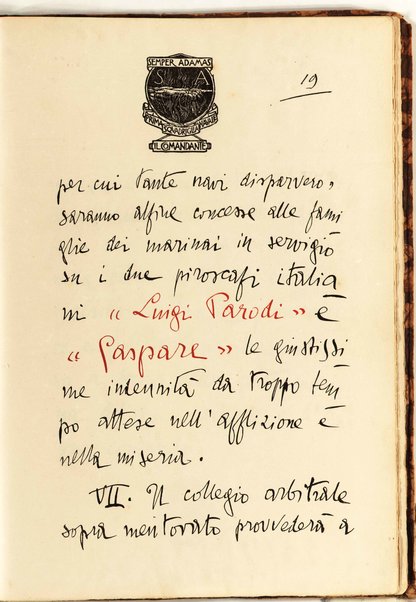 SEMPER ADAMAS
S A
PRIMA SQUADRIGLIA NAVALE
IL COMANDANTE
19
per cui tante navi disparvero,
saranno alfine concesse alle fami
glie dei marinai in servigio
su i due piroscafi italia
ni « Luigi Parodi » e
« Gaspare » le giustissi
me indennità da troppo tem
po attese nell'afflizione e
nella miseria.
VII. Il collegio arbitrale
sopra mentovato provvederà a